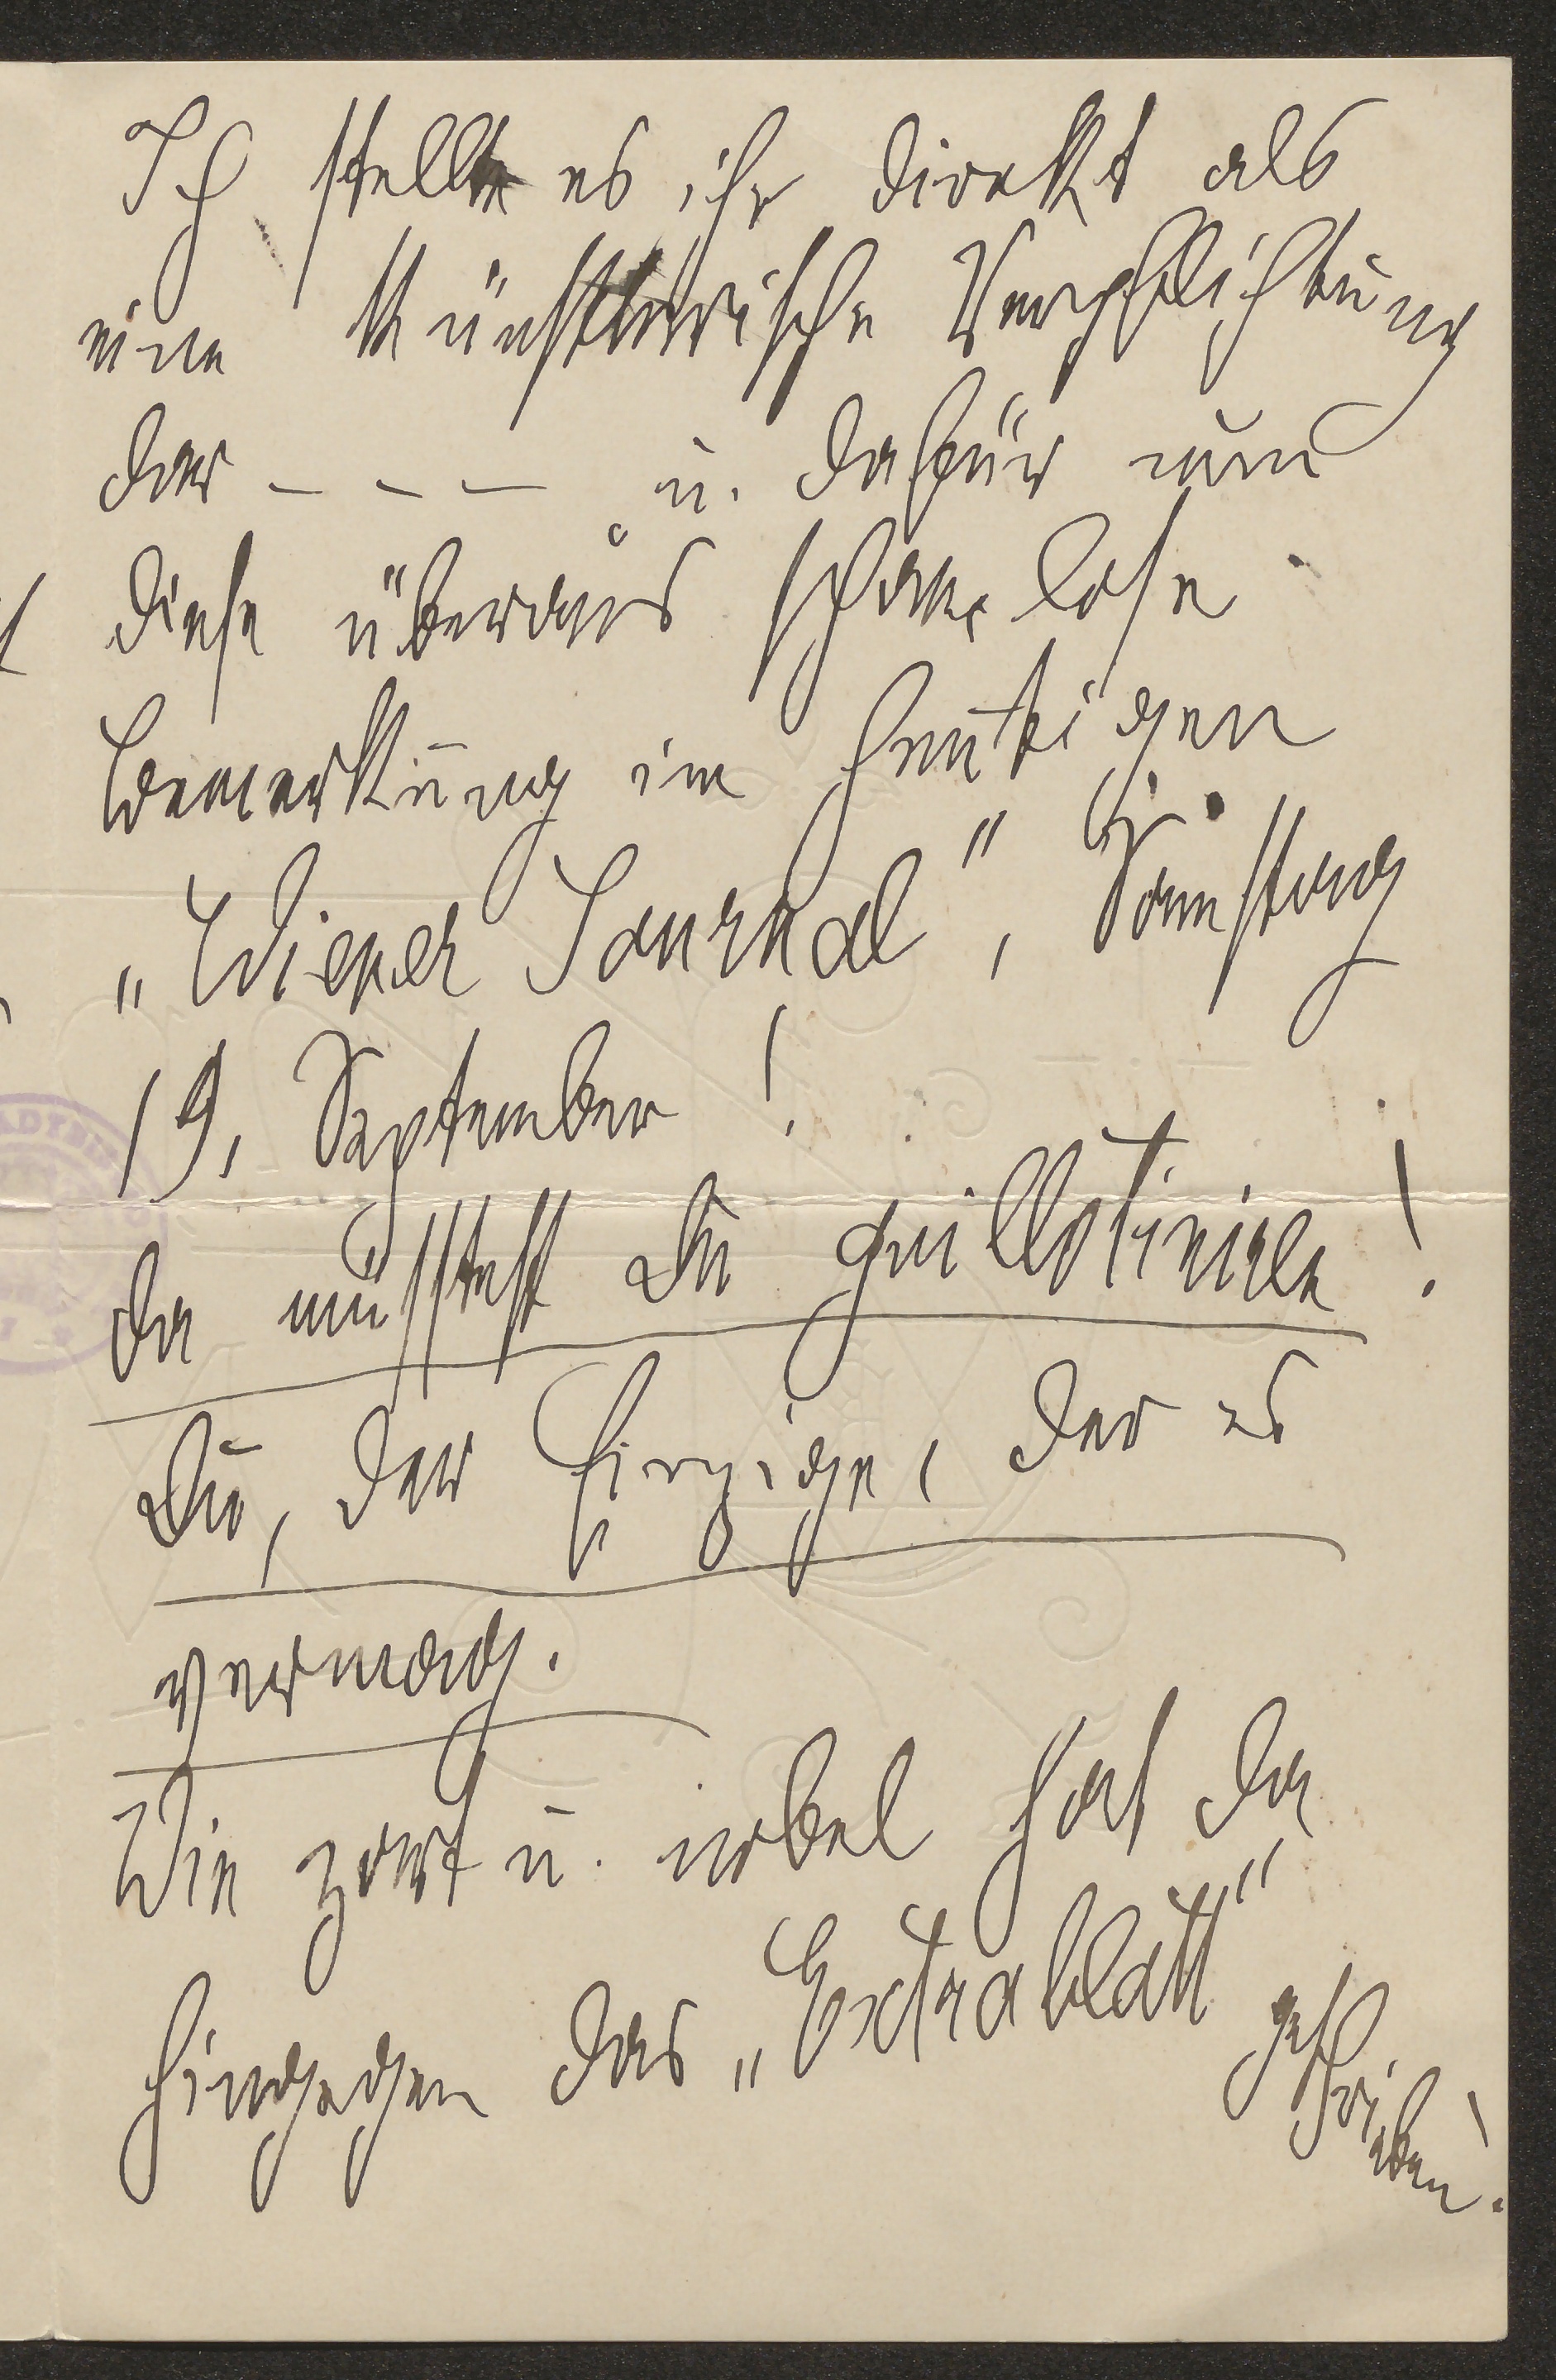 Ich stellte es ihr direkt als
eine künstlerische Verpflichtung
dar – – – u. dafür nun
diese überaus schamlose
Bemerkung im heutigen
„Wiener Journal“, Samstag
19. September!
Da müsstest Du guillotiniren!
Du, der Einzige, der es
vermag.
Wie zart u. nobel hat da
hingegen das „Extrablatt“
geschrieben!